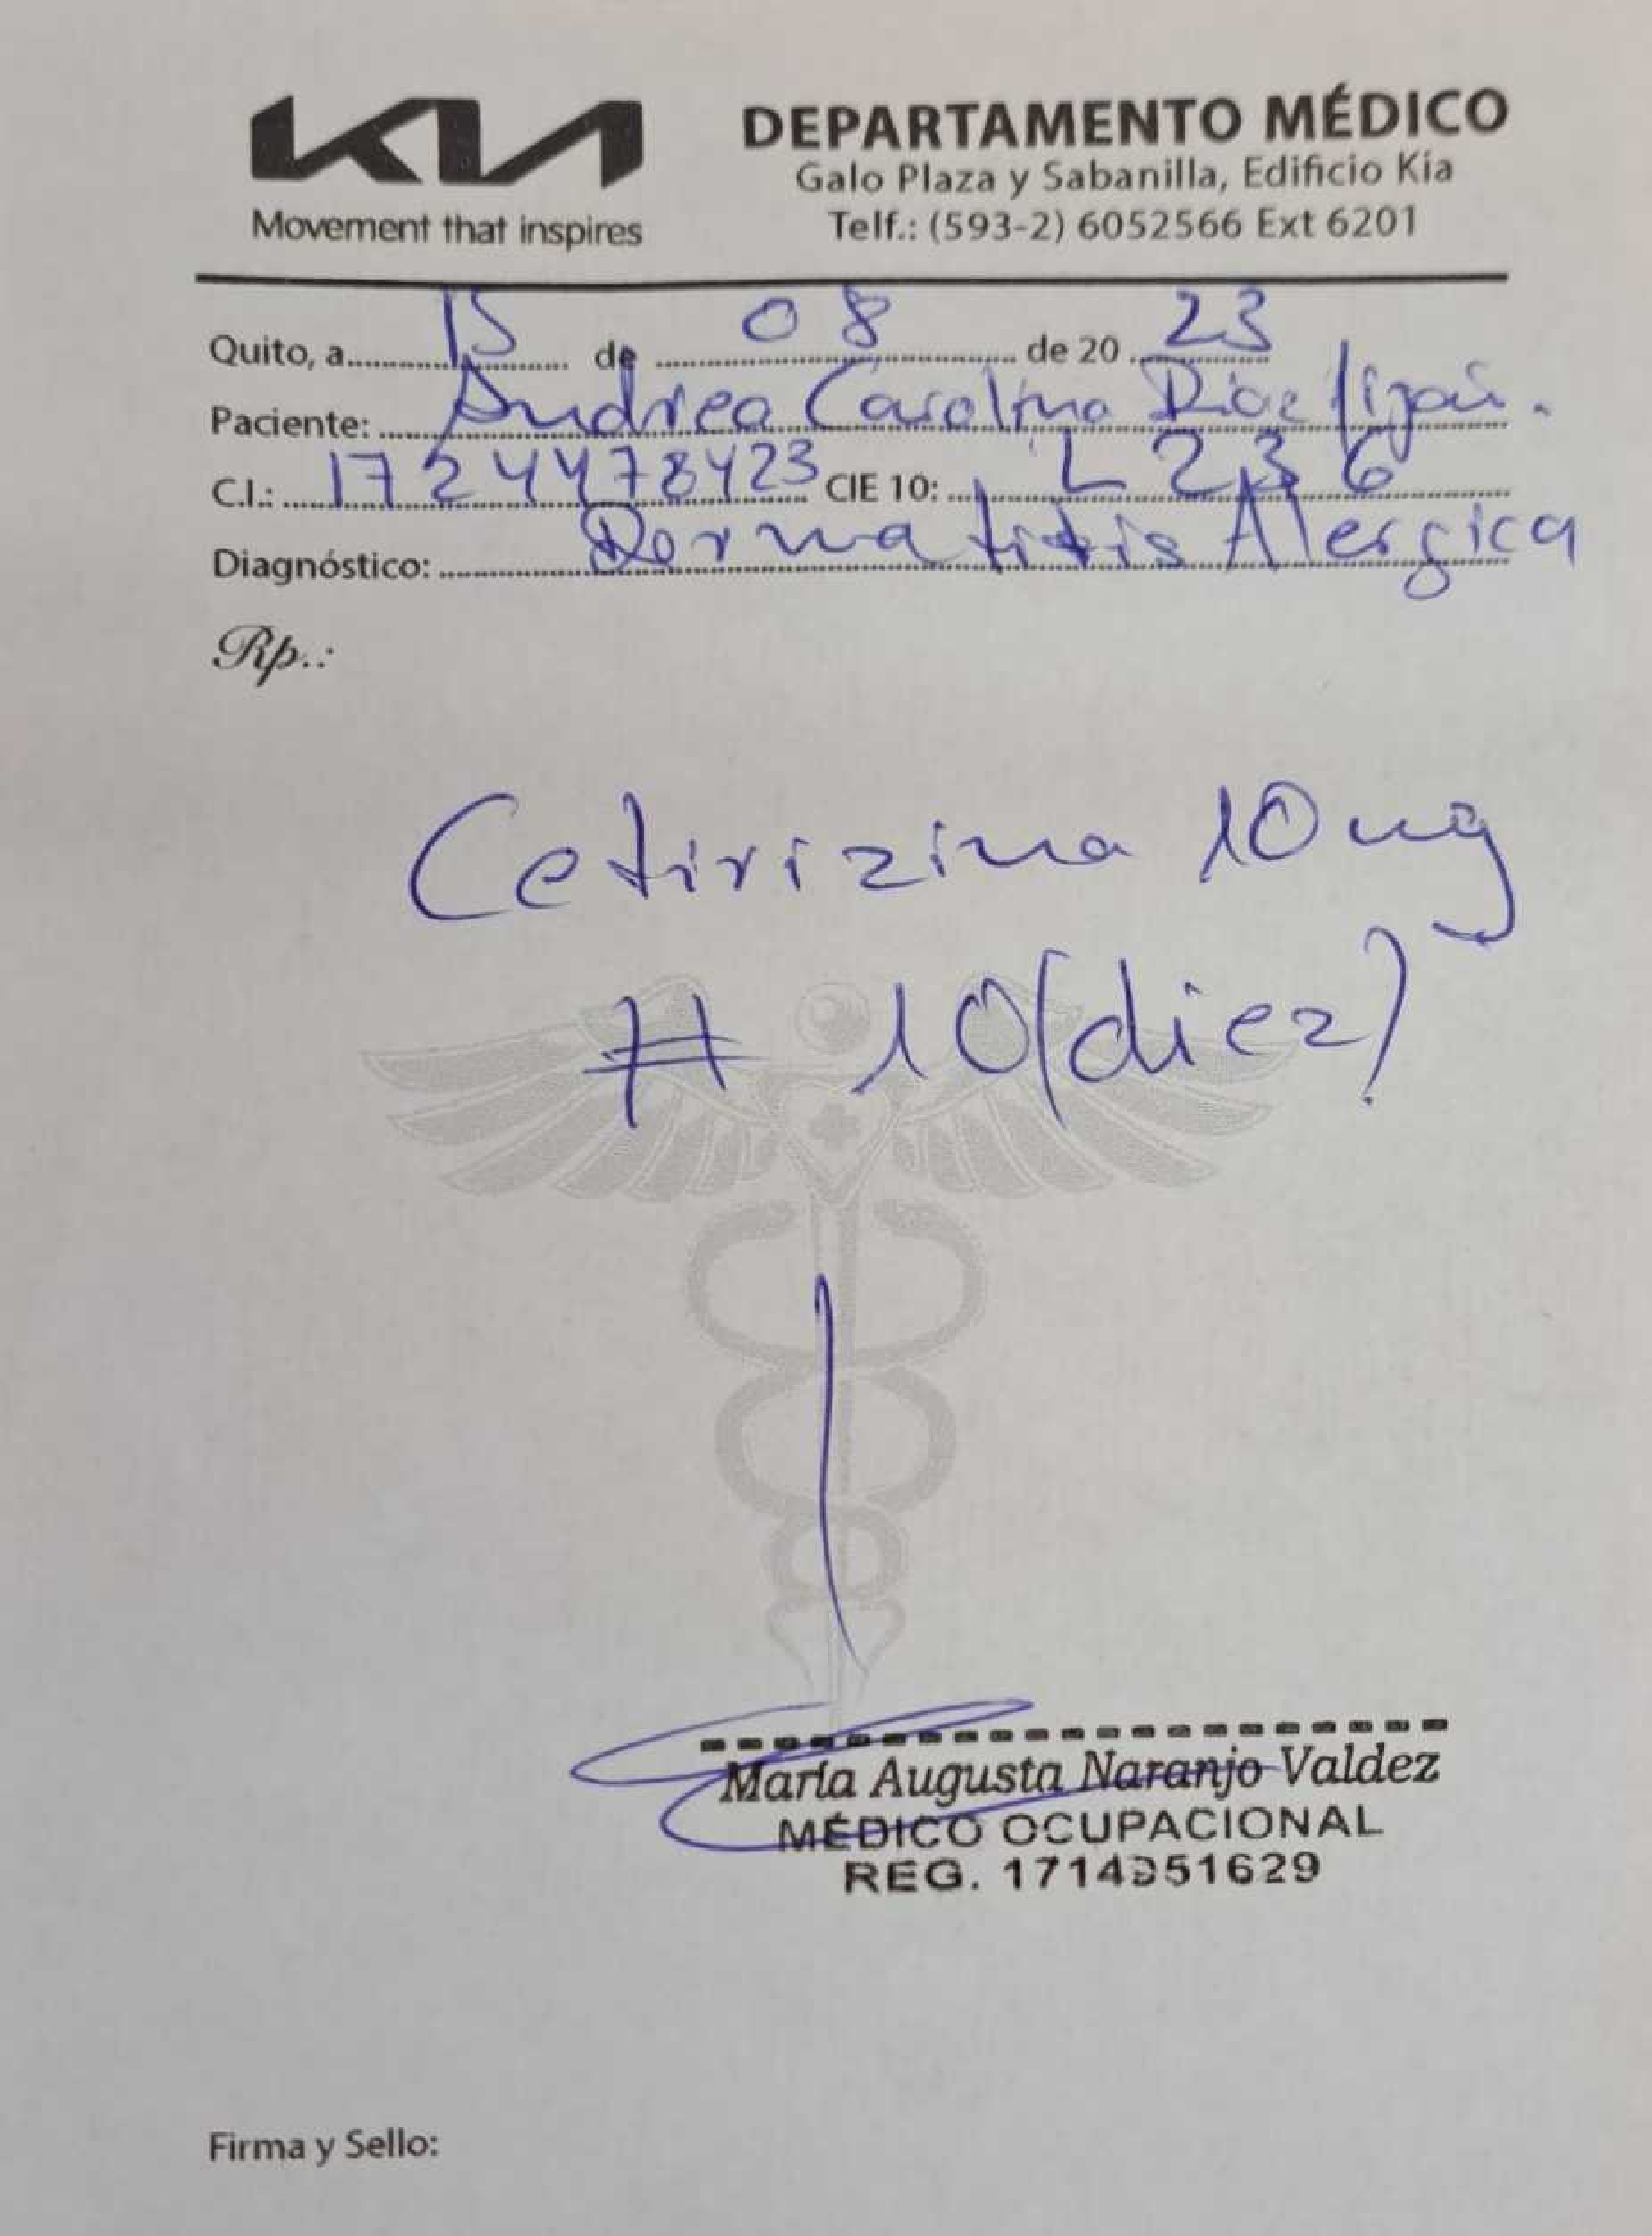 KIA
Movement that inspires
DEPARTAMENTO MÉDICO
Galo Plaza y Sabanilla, Edificio Kia
Telf.: (593-2) 6052566 Ext 6201
Quito, a 15 de 08 de 20 23
Paciente: Andrea Carolina
C.I.: 1724478423 CIE 10: L 236
Diagnóstico: Dermatitis Alergica
Rp.:
Cetirizina 10 mg
# 10 (diez)
María Augusta Naranjo Valdez
MÉDICO OCUPACIONAL
REG.
Firma y Sello: